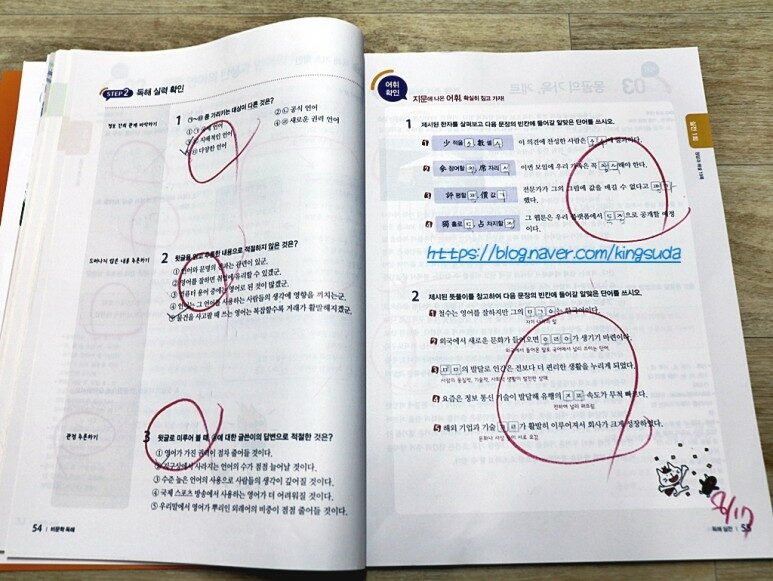 STEP 2 독해 실력 확인
정보 간의 관계 파악하기
1 ㉠~㉤ 중 가리키는 대상이 다른 것은?
② ㉡ 공식 언어
④ ㉣ 새로운 권력 언어
⑤ ㉤ 다양한 언어
드러나지 않은 내용 추론하기
2 윗글을 읽고 추론한 내용으로 적절하지 않은 것은?
① 언어와 문명의 발달은 관련이 있군.
② 영어를 잘하면 취업에 유리할 수 있겠군.
③ 컴퓨터 용어 중에는 영어로 된 것이 많겠군.
④ 언어는 그 언어를 사용하는 사람들의 생각에 영향을 끼치는군.
⑤ 물건을 사고팔 때 쓰는 언어는 복잡할수록 거래가 활발해지겠군.
관점 추론하기
3 윗글로 미루어 볼 때, 에 대한 글쓴이의 답변으로 적절한 것은?
① 영어가 가진 권력이 점차 줄어들 것이다.
② 지구상에서 사라지는 언어의 수가 점점 늘어날 것이다.
③ 수준 높은 언어의 사용으로 사람들의 생각이 깊어질 것이다.
④ 국제 스포츠 방송에서 사용하는 영어가 더 어려워질 것이다.
⑤ 우리말에서 영어가 뿌리인 외래어의 비중이 점점 줄어들 것이다.
54 | 비문학 독해
어휘 확인
지문에 나온 어휘, 확실히 짚고 가자!
1 제시된 한자를 살펴보고 다음 문장의 빈칸에 들어갈 알맞은 단어를 쓰시오.
1 少 적을 소 數 셀 수 이 의견에 찬성한 사람은 소수에 불과하다.
2 參 참여할 참 席 자리 석 이번 모임에 우리 가족은 꼭 참석해야 한다.
3 評 평할 평 價 값 가 전문가가 그의 그림에 값을 매길 수 없다고 평가
했다.
4 獨 홀로 독 占 차지할 점 그 웹툰은 우리 플랫폼에서 독점으로 공개할 예정
이다.
https://blog.naver.com/kingsuda
2 제시된 뜻풀이를 참고하여 다음 문장의 빈칸에 들어갈 알맞은 단어를 쓰시오.
1 철수는 영어를 잘하지만 그의 모국어는 한국어이다.
자기 나라의 말
2 외국에서 새로운 문화가 들어오면 외래어가 생기기 마련이다.
외국에서 들어온 말로 국어에서 널리 쓰이는 단어
3 의 발달로 인간은 전보다 더 편리한 생활을 누리게 되었다.
사람의 물질적, 기술적, 사회적 생활이 발전한 상태
4 요즘은 정보 통신 기술이 발달해 유행의 전파 속도가 무척 빠르다.
전하여 널리 퍼뜨림
5 해외 기업과 기술 교류가 활발히 이루어져서 회사가 크게 성장하였다.
문화나 사상 등이 서로 오감
실전 1회
독해 실전 | 55